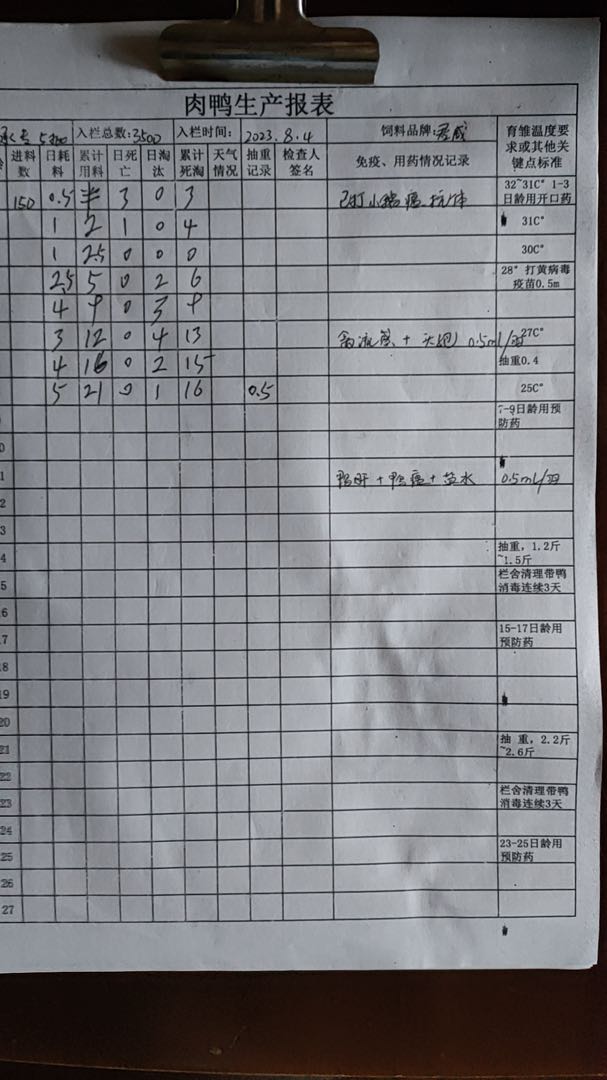 肉鸭生产报表
入栏总数:3500 入栏时间: 2023.8.4 饲料品牌: 育雏温度要求或其他关键点标准
进料数 日耗料 累计用料 日死亡 日淘汰 累计死淘 天气情况 抽重记录 检查人签名 免疫、用药情况记录
150 0.5 3 0 3 已打小鹅瘟 抗体 32~31C° 1-3日龄用开口药
1 2 1 0 4 31C°
1 2.5 0 0 0 30C°
2.5 5 0 2 6 28° 打黄病毒疫苗0.5m
4 9 0 3 9
3 12 0 4 13 0.5ml/羽 27C°
4 16 0 2 15 抽重0.4
5 21 0 1 16 0.5 25C°
7-9日龄用预防药
鸭肝+鸭瘟+盐水 0.5ml/羽
2
3
4 抽重，1.2斤~1.5斤
5 栏舍清理带鸭消毒连续3天
6
17 15-17日龄用预防药
18
19
20
21 抽 重，2.2斤~2.6斤
22
23 栏舍清理带鸭消毒连续3天
24
25 23-25日龄用预防药
26
27